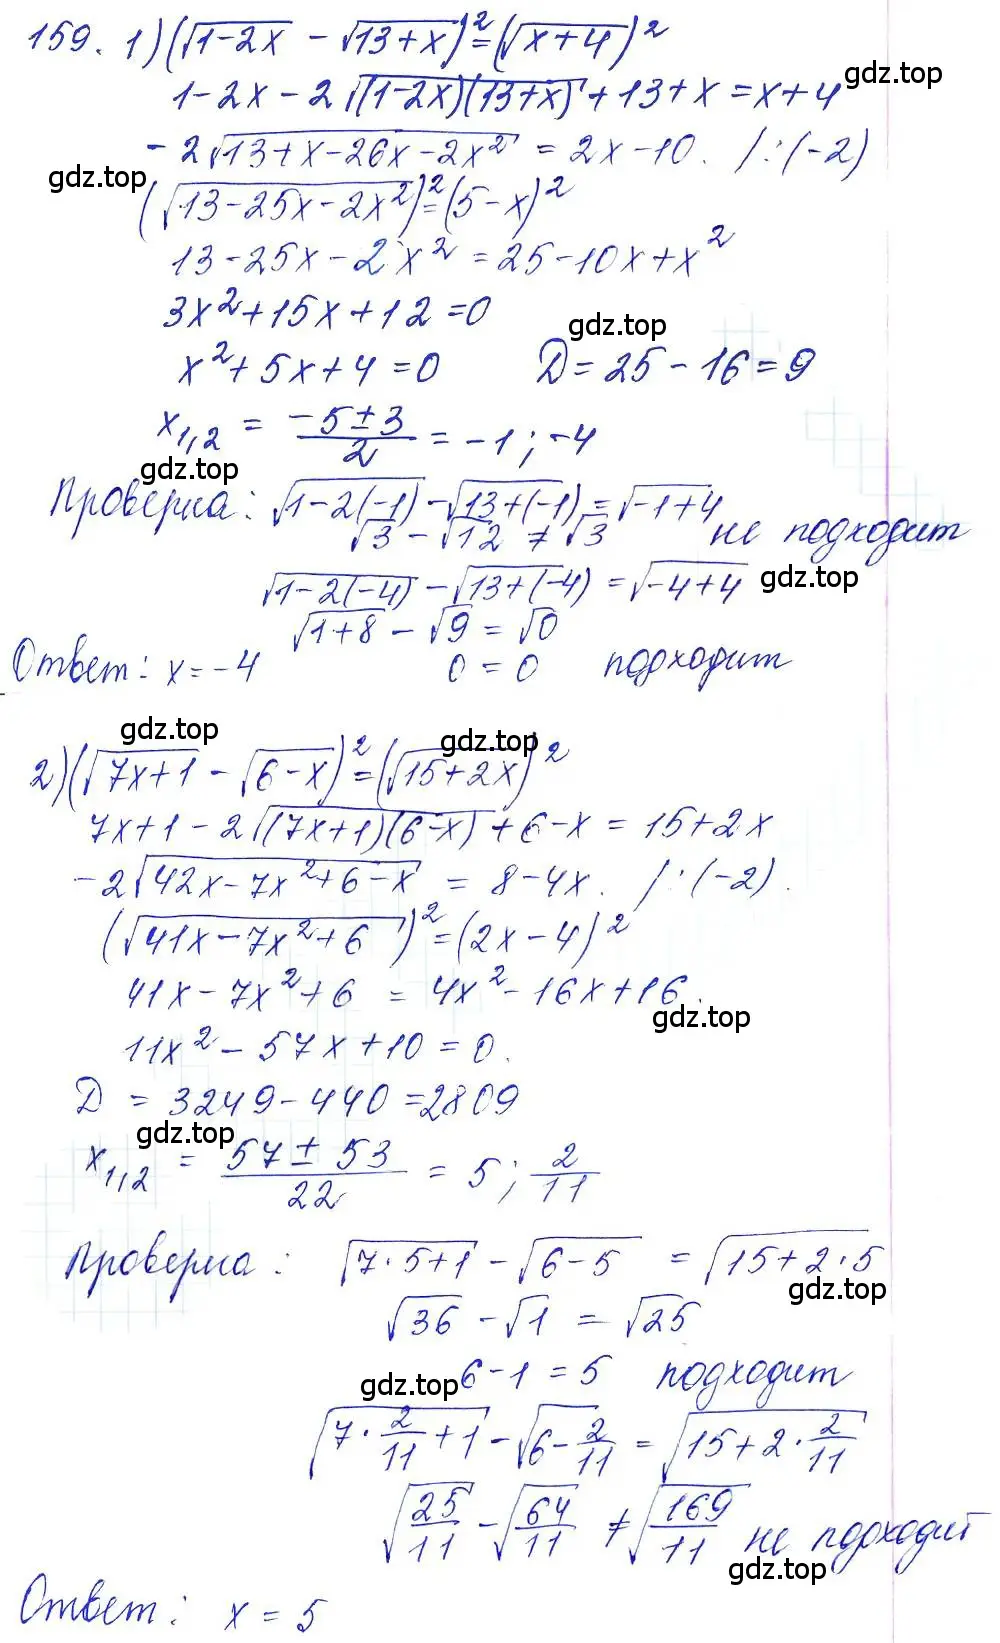 159. 1) (√(1-2x) - √(13+x))² = (√(x+4))²
gdz.top
1-2x-2√((1-2x)(13+x)) + 13+x = x+4
-2√(13+x-26x-2x²) = 2x-10. /:(-2)
gdz.top
(√(13-25x-2x²))² = (5-x)²
13-25x-2x² = 25-10x+x²
3x²+15x+12=0
gdz.top
x²+5x+4=0 D=25-16=9
x₁,₂ = (-5±3)/2 = -1; -4
gdz.top
Проверка: √(1-2(-1)) - √(13+(-1)) = √(-1+4)
√3 - √12 ≠ √3 не подходит
√(1-2(-4)) - √(13+(-4)) = √(-4+4) gdz.top
√(1+8) - √9 = √0
Ответ: x=-4 0=0 подходит
gdz.top
2) (√(7x+1) - √(6-x))² = (√(15+2x))²
7x+1-2√((7x+1)(6-x)) + 6-x = 15+2x
-2√(42x-7x²+6-x) = 8-4x. /:(-2).
(√(41x-7x²+6))² = (2x-4)²
41x-7x²+6 = 4x²-16x+16.
gdz.top
11x²-57x+10=0.
D = 3249-440=2809
gdz.top
x₁,₂ = (57±53)/22 = 5; 2/11
Проверка: √(7·5+1) - √(6-5) = √(15+2·5)
gdz.top
√36 - √1 = √25
6-1=5 подходит
gdz.top
√(7·2/11+1) - √(6-2/11) = √(15+2·2/11)
√(25/11) - √(64/11) ≠ √(169/11) не подходит
gdz.top
Ответ: x=5